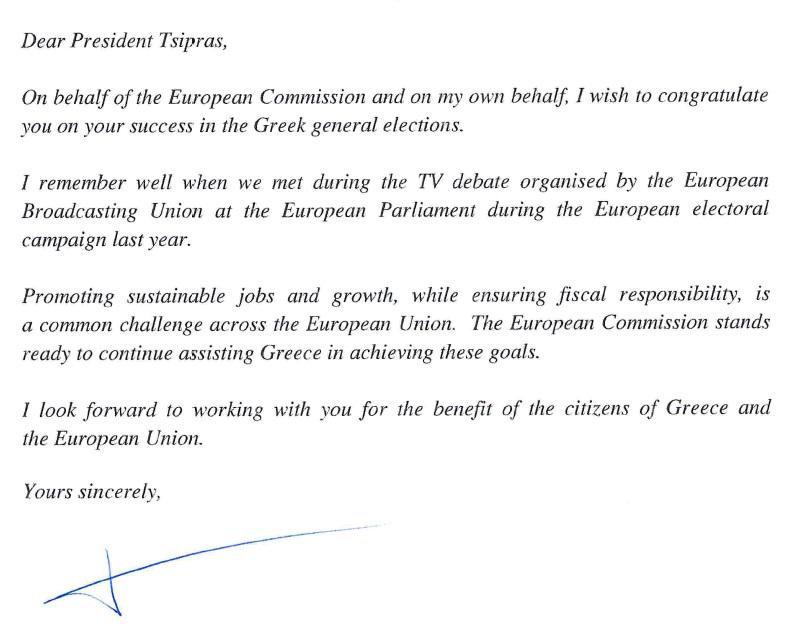 Dear President Tsipras,
On behalf of the European Commission and on my own behalf, I wish to congratulate
you on your success in the Greek general elections.
I remember well when we met during the TV debate organised by the European
Broadcasting Union at the European Parliament during the European electoral
campaign last year.
Promoting sustainable jobs and growth, while ensuring fiscal responsibility, is
a common challenge across the European Union. The European Commission stands
ready to continue assisting Greece in achieving these goals.
I look forward to working with you for the benefit of the citizens of Greece and
the European Union.
Yours sincerely,